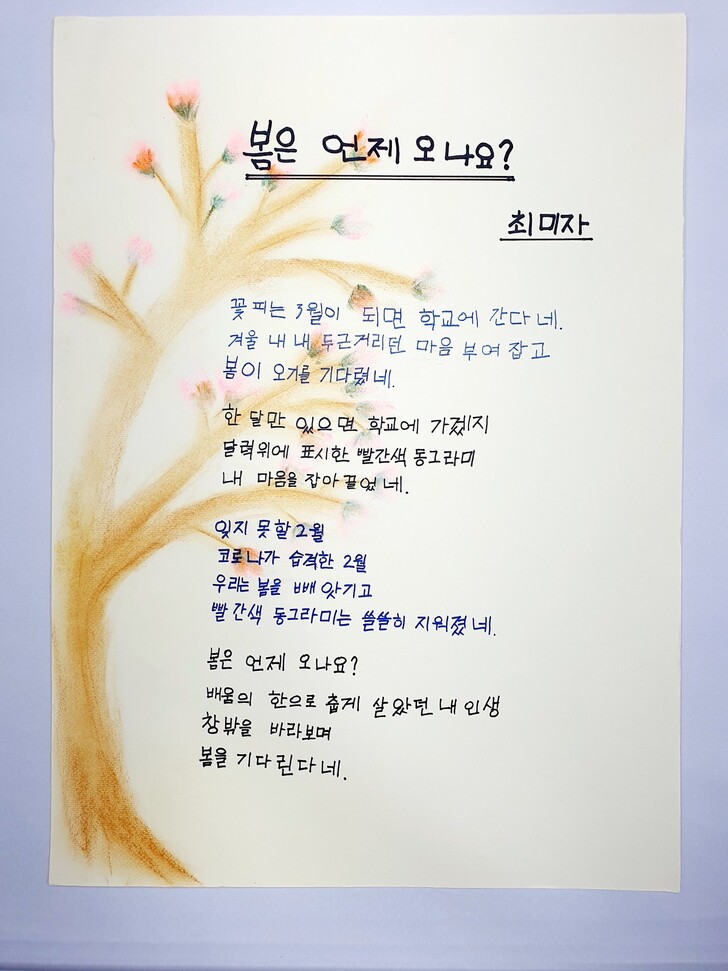 봄은 언제 오나요?
최미자
꽃 피는 3월이 되면 학교에 간다네.
겨울 내내 두근거리던 마음 부여 잡고
봄이 오기를 기다렸네.
한 달만 있으면 학교에 가겠지
달력위에 표시한 빨간색 동그라미
내 마음을 잡아 끌었네.
잊지 못할 2월
코로나가 습격한 2월
우리는 봄을 빼앗기고
빨간색 동그라미는 쓸쓸히 지워졌네.
봄은 언제 오나요?
배움의 한으로 춥게 살았던 내 인생
창밖을 바라보며
봄을 기다린다네.